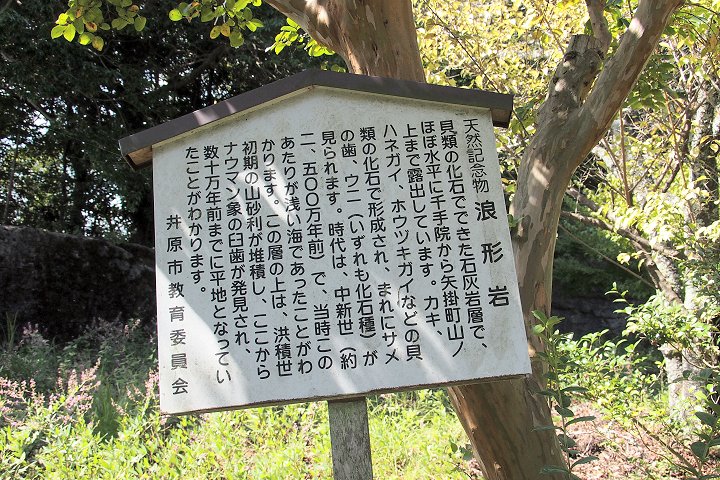 天然記念物 浪形岩
貝類の化石でできた石灰岩層で、
ほぼ水平に千手院から矢掛町山ノ
上まで露出しています。カキ、
ハネガイ、ホウヅキガイなどの貝
類の化石で形成され、まれにサメ
の歯、ウニ（いずれも化石種）が
見られます。時代は、中新世（約
二、五〇〇万年前）で、当時この
あたりが浅い海であったことがわ
かります。この層の上は、洪積世
初期の山砂利が堆積し、ここから
ナウマン象の臼歯が発見され、
数十万年前までに平地となってい
たことがわかります。
井原市教育委員会